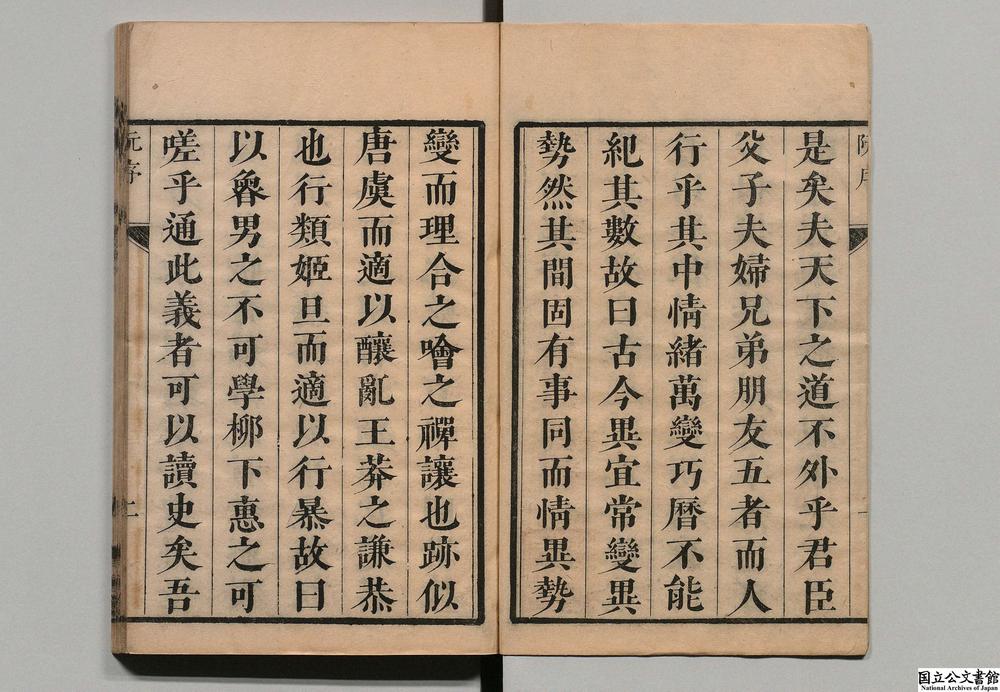 是矣夫天下之道不外乎君臣
父子夫婦兄弟朋友五者而人
行乎其中情緒萬變巧曆不能
紀其數故曰古今異宜常變異
勢然其間固有事同而情異勢
變而理合之噲之禪讓也跡似
唐虞而適以釀亂王莽之謙恭
也行類姬旦而適以行暴故曰
以魯男之不可學柳下惠之可
嗟乎通此義者可以讀史矣吾
国立公文書館
National Archives of Japan